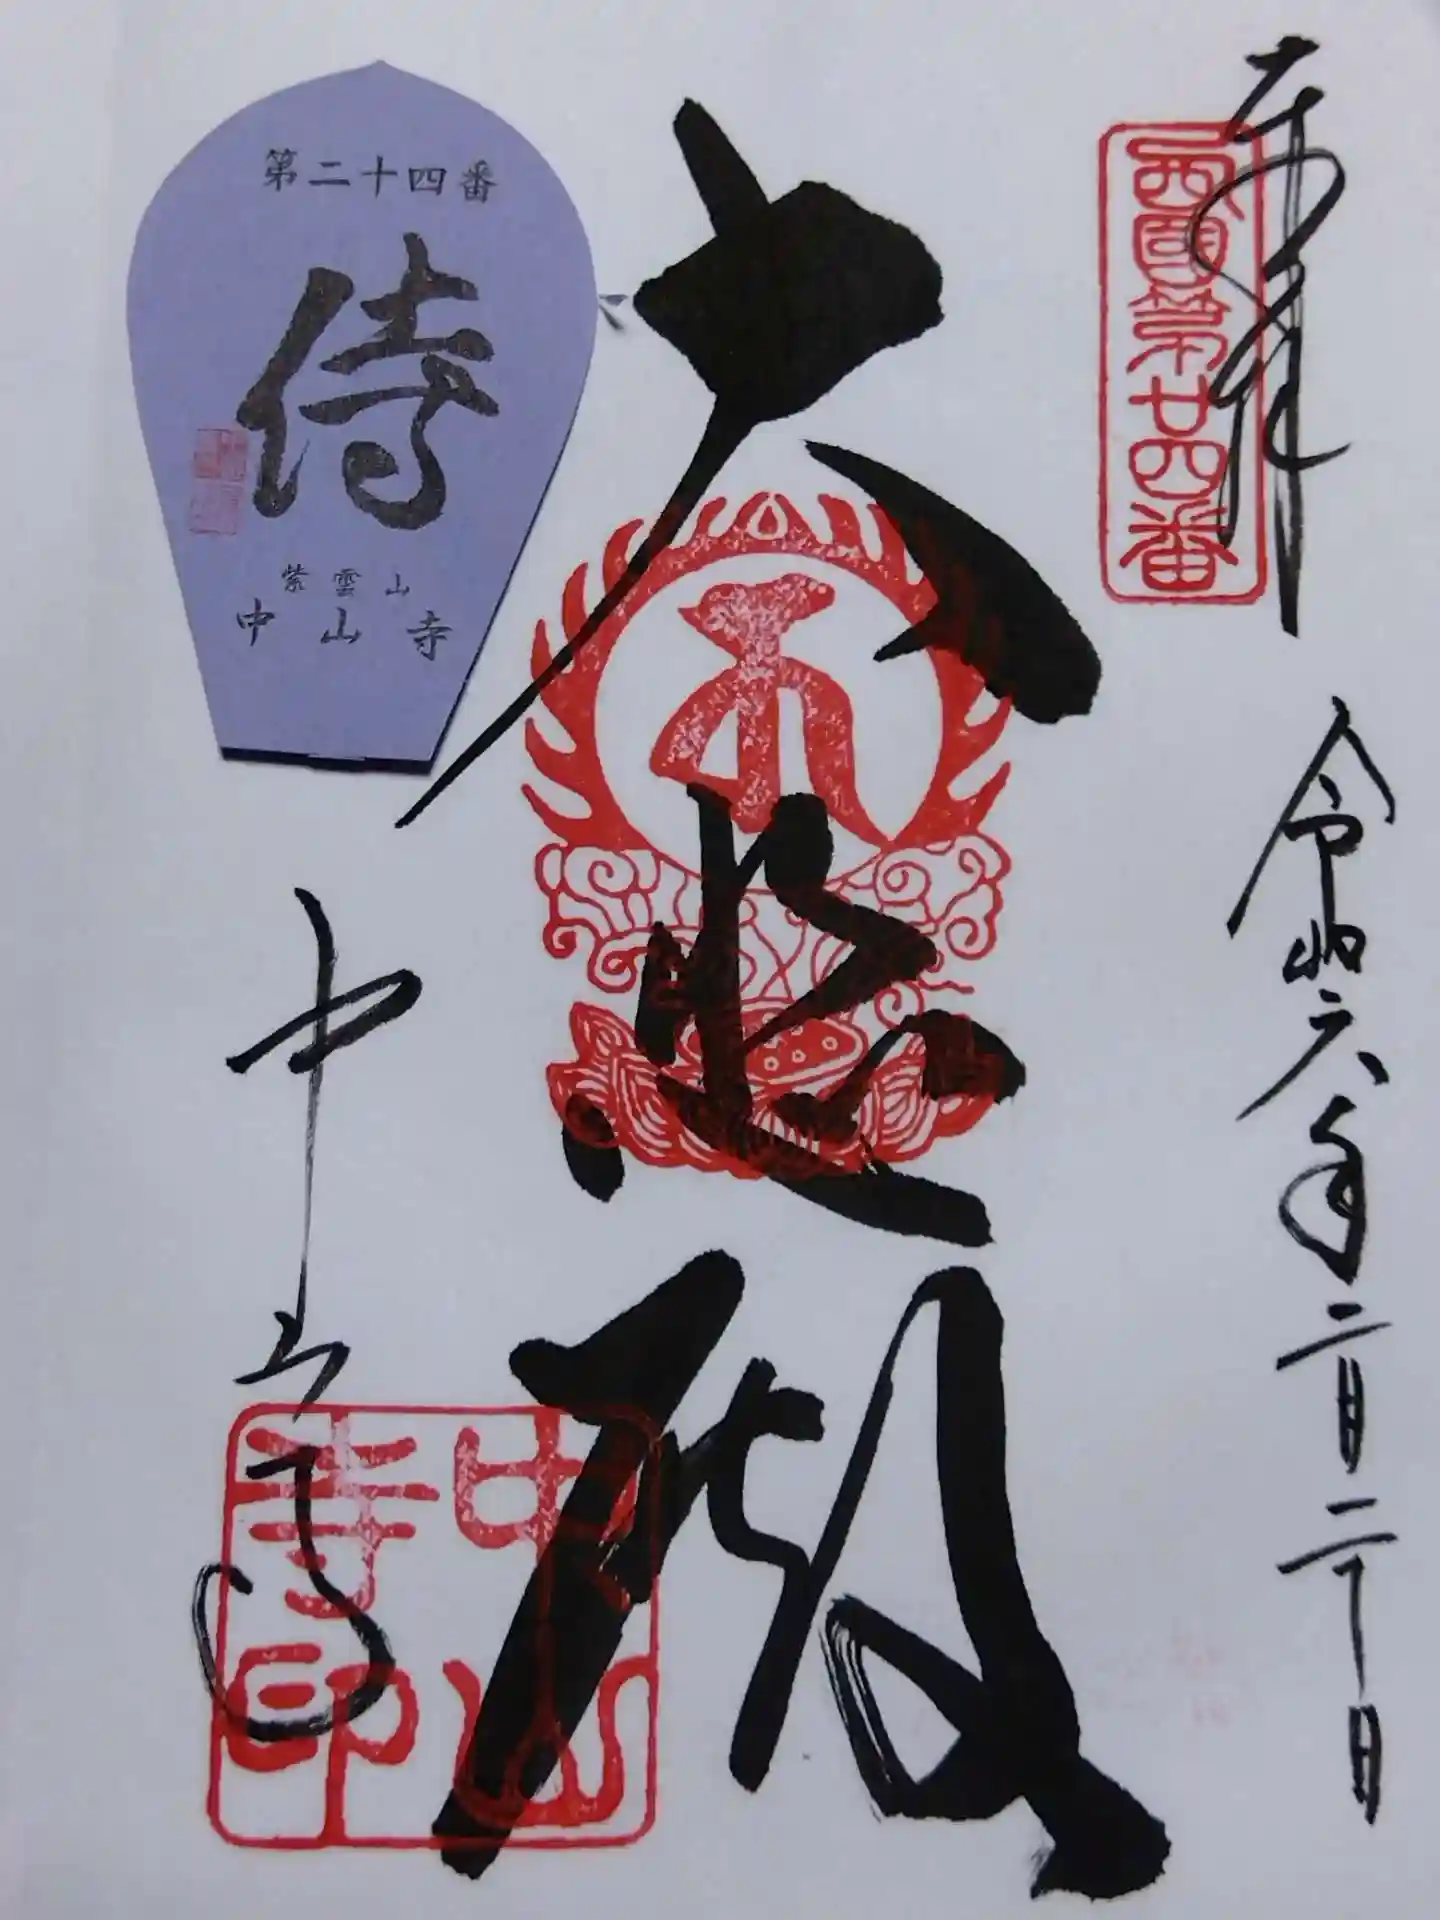 奉拝
西國第廿四番
令和六年二月二十日
大悲殿
中山寺
中山寺印
第二十四番
侍
紫雲山
中山寺